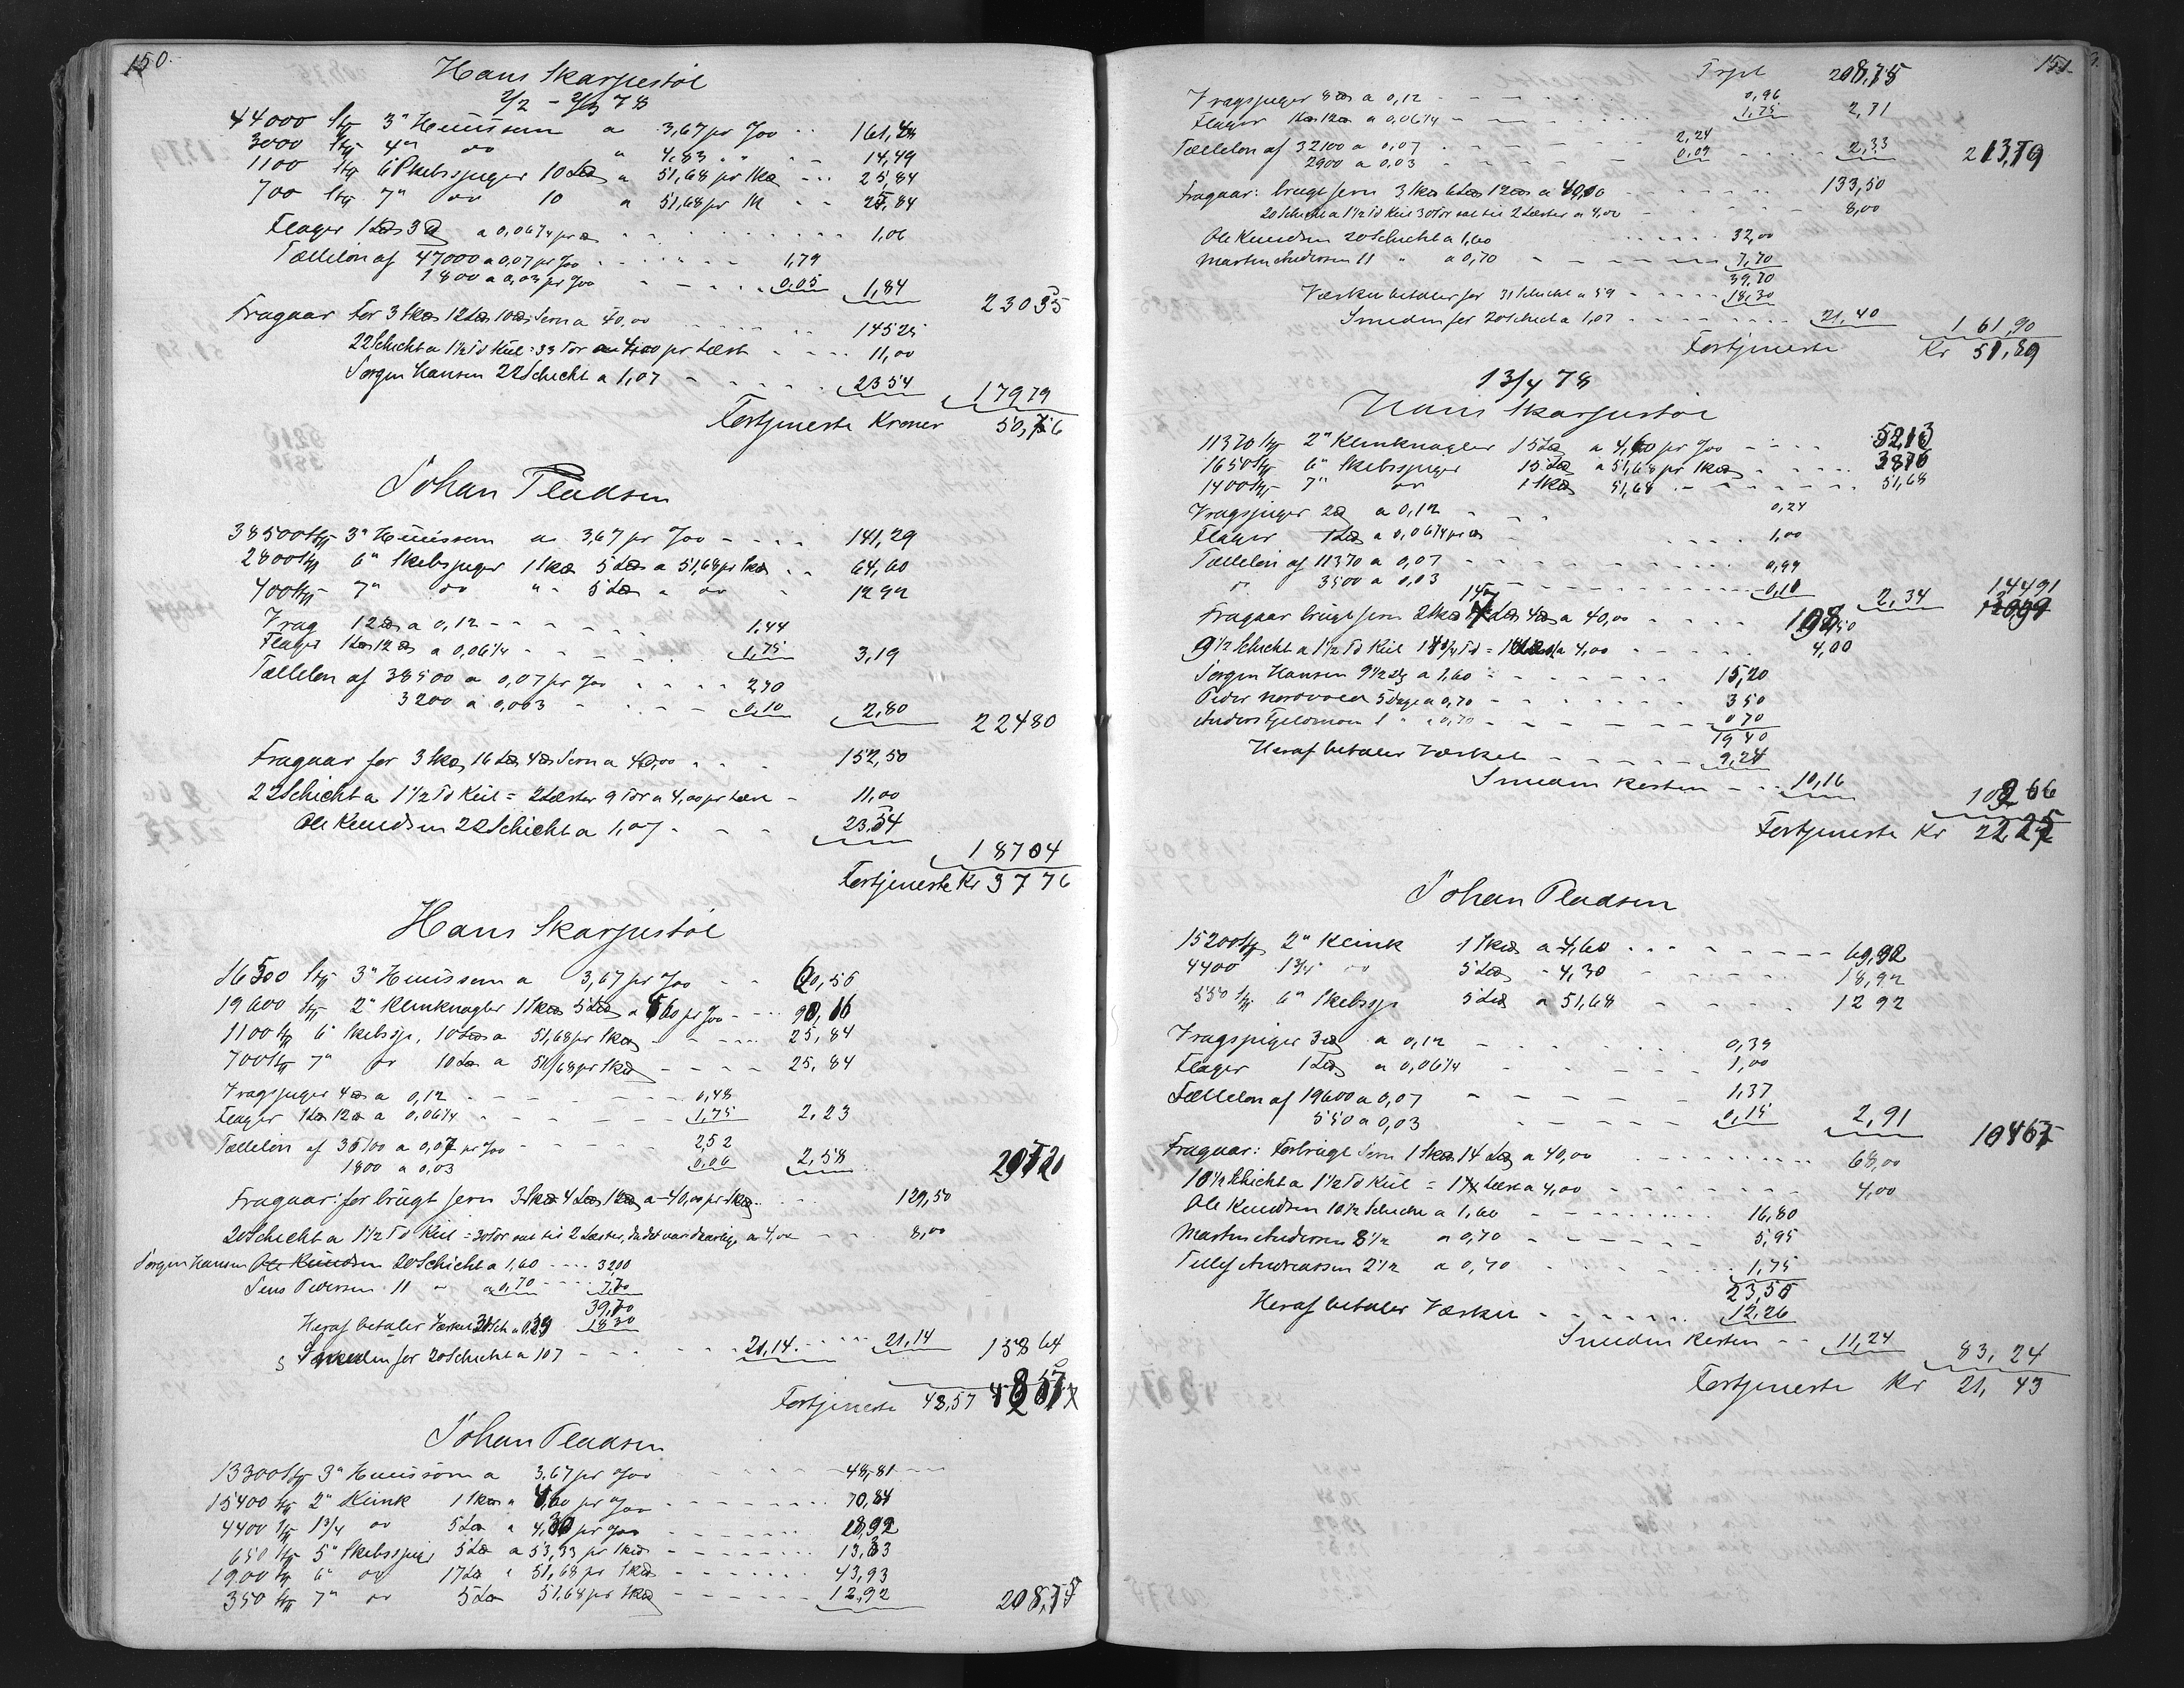 150.
Hans Skarpestöl
2/2 - 2/3 78
44000 Stk 3" Huussøm a 3,67 pr %oo 161,48
3000 Stk 4" do " 4,83 " 14,49
1100 Stk 6" Skibsspiger 10 Lod a 51,68 pr Skd 25,84
700 Stk 7" do 10 a 51,68 pr Sk 25,84
Flager 1 Lod 3 a 0,06¼ pr 1,06
Tællelön af 47000 a 0,07 pr %oo 1,79
1800 a 0,03 pr %oo 0,05 1,84
23035
Fragaar for 3 Skd 12 Lod 10 Jern a 40,00 14525
22 Schicht a 1½ Td Kul = 33 Tdr a 4,00 pr Læst 11,00
Jørgen Hansen 22 Schicht a 1,07 2354
17979
Fortjeneste Kroner 50,56
Johan Pladsen
38500 Stk 3" Huussøm a 3,67 pr %oo 141,29
2800 Stk 6" Skibsspiger 1 Skd 5 Lod a 51,68 pr Skd 64,60
400 Stk 7" do " 5 Lod a do 1292
Vrag 12 a 0,12 1,44
Flager 1 Lod 12 a 0,06¼ 1,75 3,19
Tællelön af 38500 a 0,07 pr %oo 2,70
3200 a 0,003 0,10 2,80
22480
Fragaar for 3 Skd 16 Lod 4 Jern a 40,00 152,50
22 Schicht a 1½ Td Kul = 2 Læster 9 Tdr a 4,00 pr Læst 11,00
Ole Knudsen 22 Schicht a 1,07 23,54
18704
Fortjeneste Kr 3776
Hans Skarpestöl
16500 Stk 3" Huussøm a 3,67 pr %oo 60,56
19600 Stk 2" Klinknagler 1 Skd 5 Lod a 4,60 pr %oo 90,16
1100 Stk 6" Skibssp. 10 Lod a 51,68 pr Skd 25,84
700 Stk 7" do 10 Lod a 51,68 pr Skd 25,84
Vragspiger 4 a 0,12 0,48
Flager 1 Lod 12 a 0,06¼ 1,75 2,23
Tællelön af 36100 a 0,07 pr %oo 2,52
1800 a 0,03 0,06 2,58
20721
Fragaar: forbrugt Jern 3 Skd 4 Lod 12 a 40,00 pr Skd 129,50
20 Schicht a 1½ Td Kul = 30 Tdr sat til 2 Læster, da det var daarlig, a 4,00 8,00
Jørgen Hansen Ole Knudsen 20 Schicht a 1,60 3200
Jens Pedersen 11 " a 0,70 7,70
39,70
Heraf betaler Værket 31 Sch a 0,59 18,30
Smeden for 20 Schicht a 107 21,14 21,14
158 64
Fortjeneste 48,57 48 57
Johan Pladsen
13300 Stk 3" Huussøm a 3,67 pr %oo 48,81
15400 Stk 2" Klink 1 Skd a 4,60 pr %oo 70,84
4400 Stk 1¾ do 5 Lod a 4,30 pr %oo 18,92
650 Stk 5" Skibsspiger 5 Lod a 53,33 pr Skd 13,33
1900 Stk 6" do 17 Lod a 51,68 pr Skd 43,93
350 Stk 7" do 5 Lod 51,68 pr Skd 12,92
208,75
151.
Trspt 208,75
Vragspiger 8 a 0,12 0,96
Flager 1 Lod 12 a 0,06¼ 1,75 2,71
Tællelön af 32100 a 0,07 2,24
2900 a 0,03 0,09 2,33
213,79
Fragaar: brugt Jern 3 Skd 6 Lod 12 a 40,00 133,50
20 Schicht a 1½ Td Kul 30 Tdr sat til 2 Læster a 4,00 8,00
Ole Knudsen 20 Schicht a 1,60 32,00
Martin Andersen 11 " a 0,70 7,70
39,70
Værket betaler for 31 Schicht a 59 18,30
Smeden for 20 Schicht a 1,07 21,40
161,90
Fortjeneste Kr 51,89
13/4 78
Hans Skarpestöl
11370 Stk 2" Klinknagler 15 Lod a 4,60 pr %oo 5213
1650 Stk 6" Skibsspiger 15 Lod a 51,68 pr Skd 3876
1400 Stk 7" do 1 Skd 51,68 51,68
Vragspiger 2 a 0,12 0,24
Flager 1 Lod a 0,06¼ pr 1,00
Tællelön af 11370 a 0,07 0,99
do 3500 a 0,03 0,10 2,34
14491
Fragaar brugt Jern 2 Skd Lod 4 a 40,00
9½ Schicht a 1½ Td Kul a 4,00 4,00
Jørgen Hansen 9½ a 1,60 15,20
Peder Nordvolden 5 Dage a 0,70 350
Anders Fjeldmoen 1 " a 0,70 070
1940
Heraf betaler Værket 9,24
Smeden Resten 10,16
66
Fortjeneste Kr 22,25
Johan Pladsen
15200 Stk 2" Klink 1 Skd a 4,60 69,92
4400 1¾ do 5 Lod " 4,30 18,92
550 Stk 6" Skibssp 5 Lod a 51,68 1292
Vragspiger 3 a 0,12 0,39
Flager 1 Lod a 0,06¼ 1,00
Tællelön af 19600 a 0,07 1,37
550 a 0,03 0,15 2,91
10467
Fragaar: Forbrugt Jern 1 Skd 14 Lod a 40,00 68,00
10½ Schicht a 1½ Td Kul = Læst a 4,00 4,00
Ole Knudsen 10½ Schicht a 1,60 16,80
Martin Andersen 8½ a 0,70 5,95
Tellef Andreassen 2½ a 0,70 1,75
23,50
Heraf betaler Værket 12,26
Smeden Resten 11,24
83,24
Fortjeneste Kr 21,43